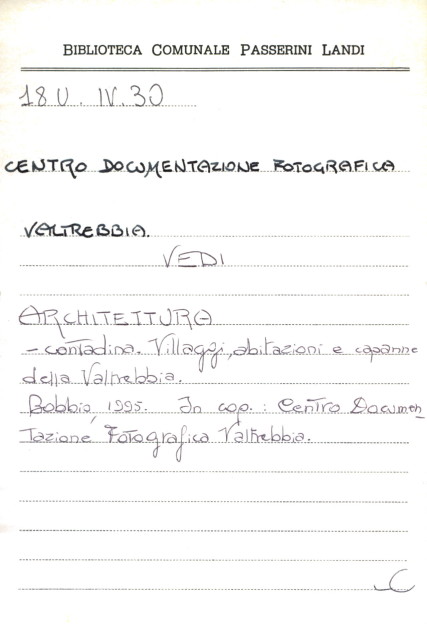 BIBLIOTECA COMUNALE PASSERINI LANDI
18 U. IV. 30
CENTRO DOCUMENTAZIONE FOTOGRAFICA
VALTREBBIA.
VEDI
ARCHITETTURA
- contadina. Villaggi, abitazioni e capanne
della Valtrebbia.
Bobbio, 1995. In cop.: Centro Documen
tazione Fotografica Valtrebbia.